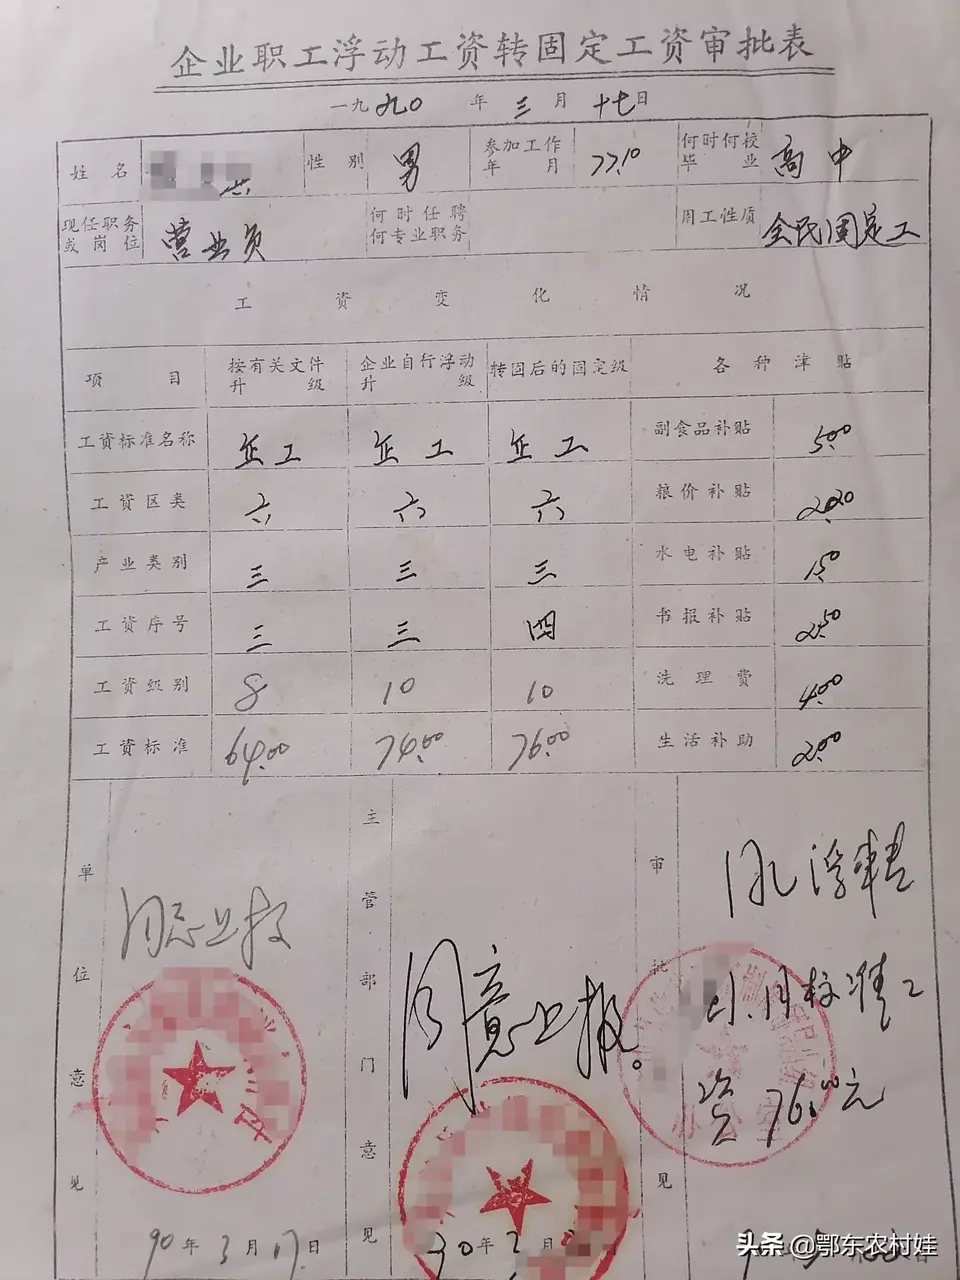 企业职工浮动工资转固定工资审批表
一九九〇年三月十七日
姓名 性别 男 参加工作年月 77.10 何时何校毕业 高中
现任职务或岗位 营业员 何时任聘何专业职务 用工性质 全民固定工
工资变化情况
项目 按有关文件升级 企业自行浮动升级 转固后的固定级 各种津贴
工资标准名称 企工 企工 企工 副食品补贴 5.00
工资区类 六 六 六 粮价补贴
产业类别 三 三 三 水电补贴 1.50
工资序号 三 三 四 书报补贴 2.50
工资级别 8 10 10 洗理费 4.00
工资标准 64.00 74.00 76.00 生活补助 2.00
单位意见 同意上报
90年3月17日
主管部门意见 同意上报。
年 月 日
审批意见
资76.00元
办公室
头条 @鄂东农村娃